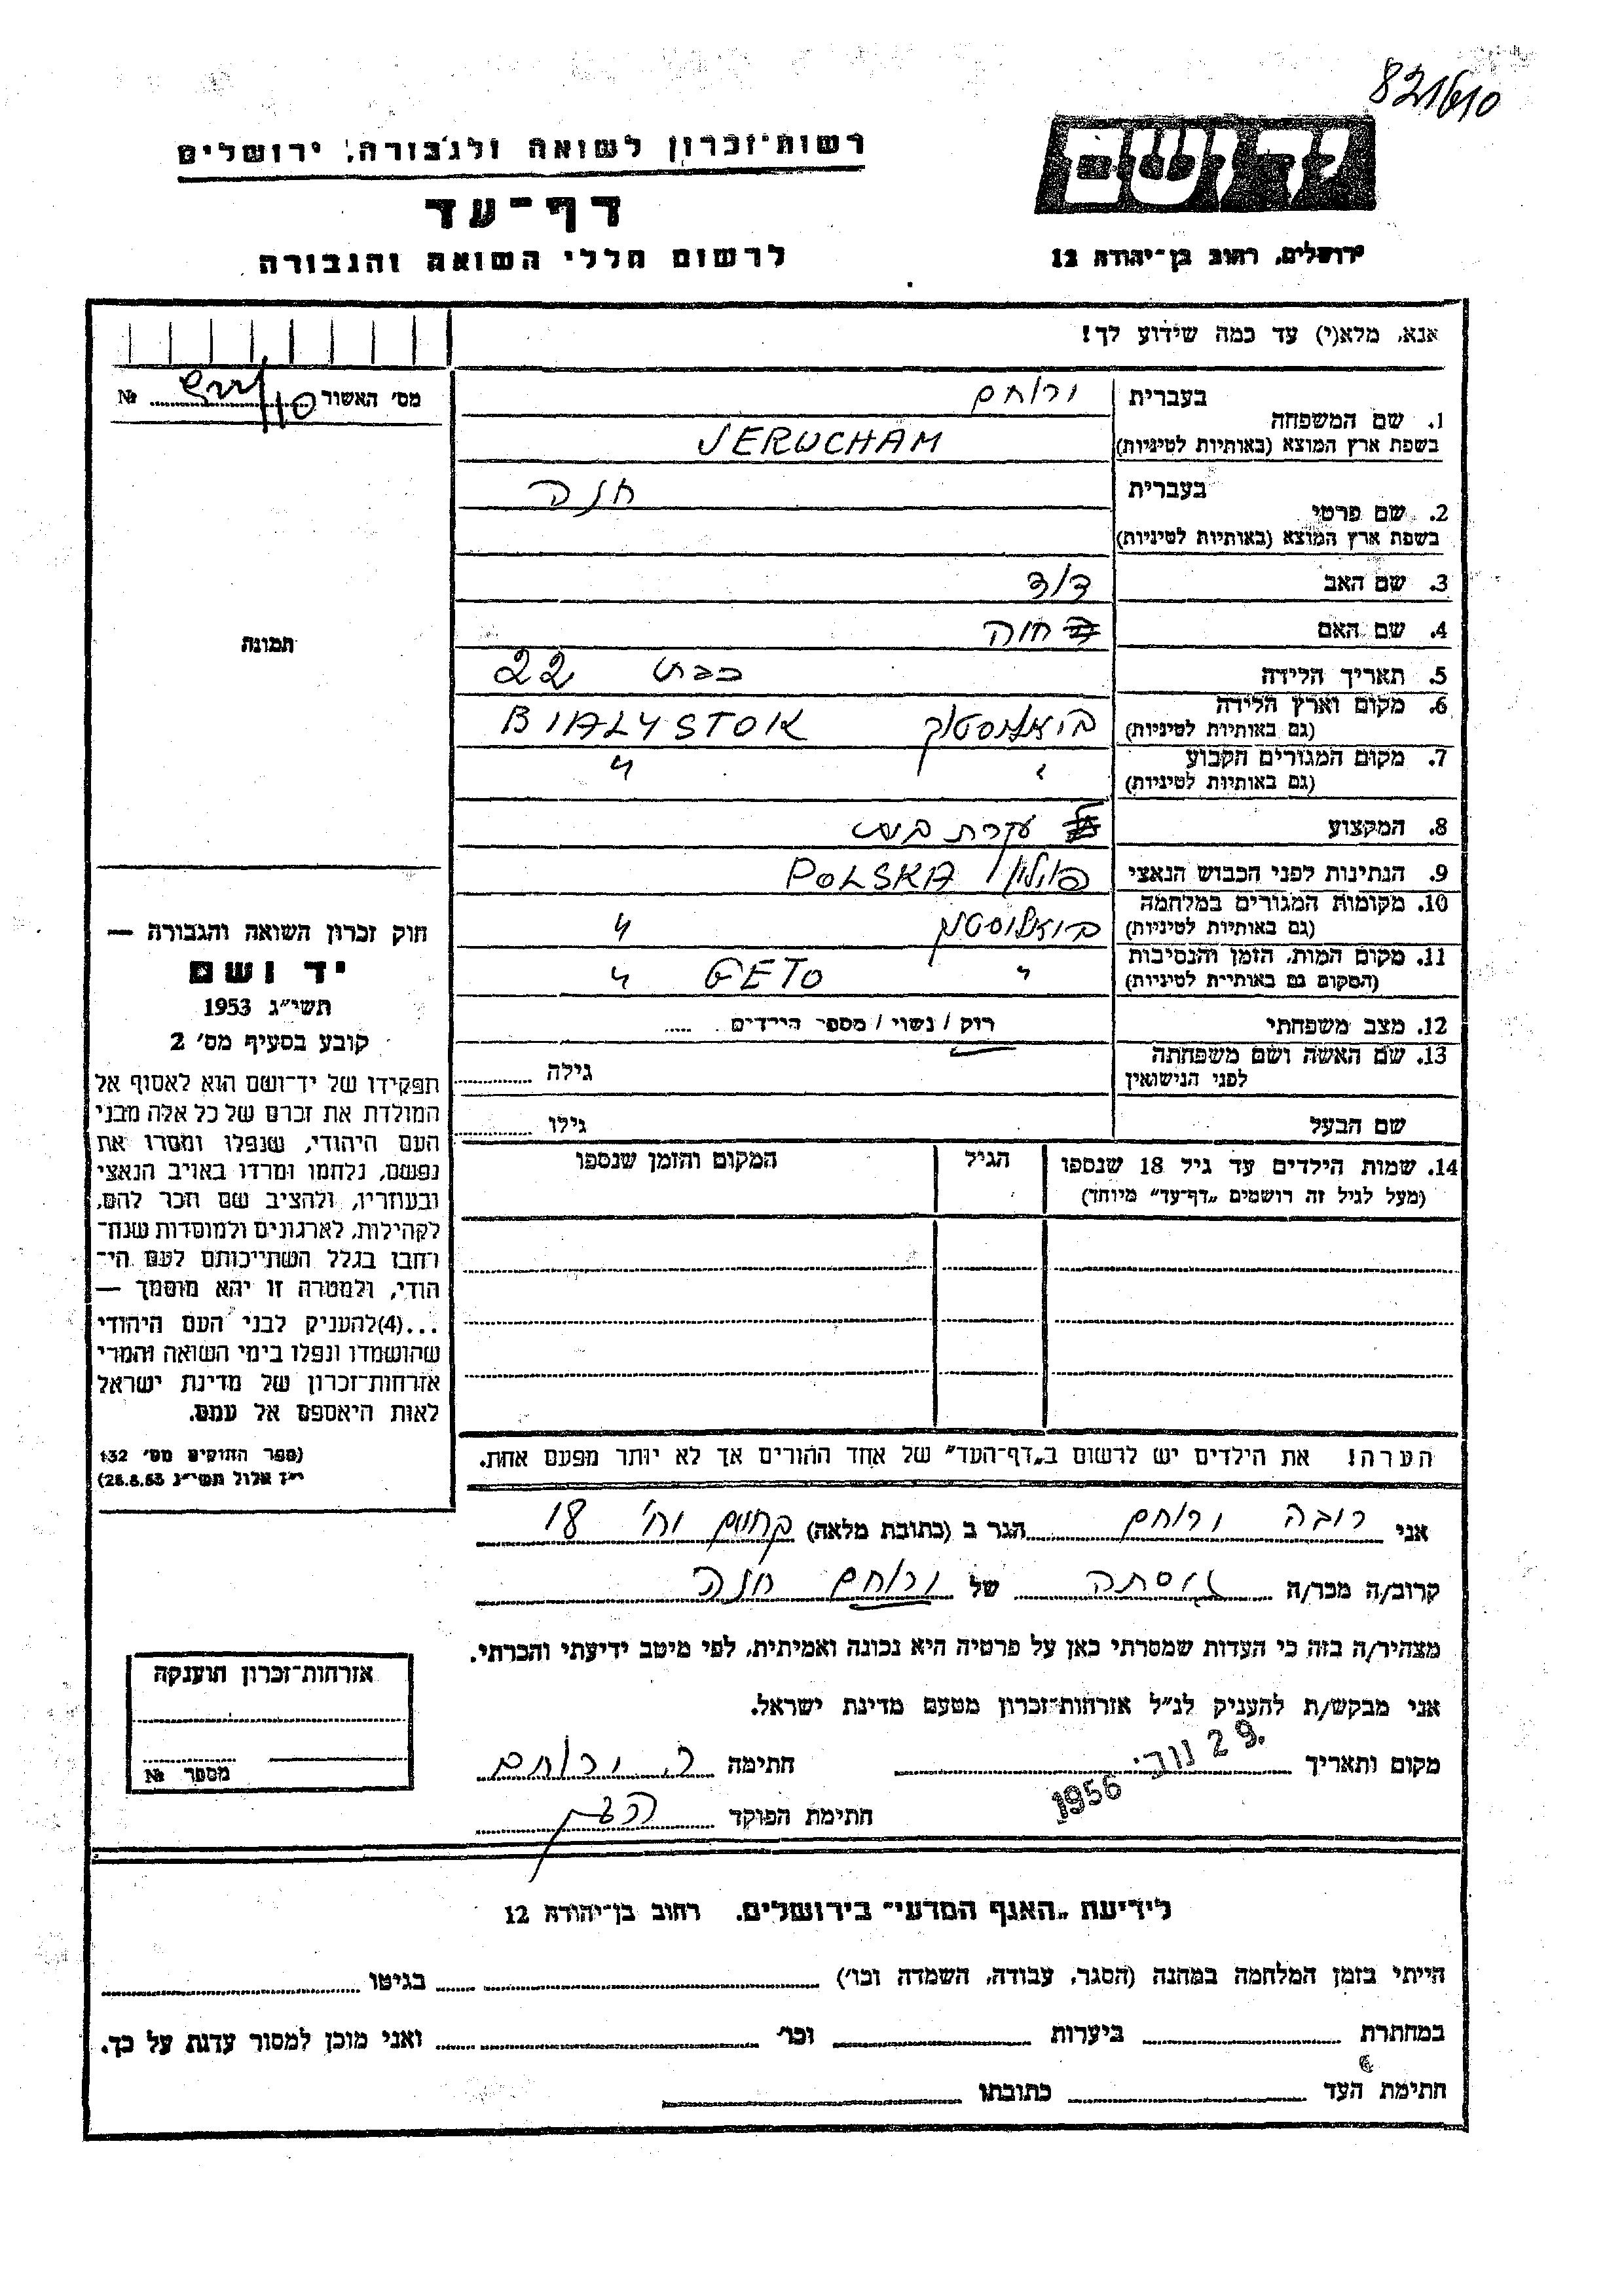 821610
יד ושם
רשות־זכרון לשואה ולגבורה, ירושלים
דף־עד
לרשום חללי השואה והגבורה
ירושלים, רחוב בן־יהודה 12
אנא, מלא(י) עד כמה שידוע לך!
מס׳ האשור № 
בעברית ירוחם
1. שם המשפחה
בשפת ארץ המוצא (באותיות לטיניות) JERUCHAM
בעברית חנה
2. שם פרטי
בשפת ארץ המוצא (באותיות לטיניות)
3. שם האב דוד
4. שם האם חוה
5. תאריך הלידה כבת 22
6. מקום וארץ הלידה ביאליסטוק BIALYSTOK
(גם באותיות לטיניות)
7. מקום המגורים הקבוע " "
(גם באותיות לטיניות)
8. המקצוע עקרת בית
9. הנתינות לפני הכבוש הנאצי פולין / POLSKA
10. מקומות המגורים במלחמה ביאליסטוק "
(גם באותיות לטיניות)
11. מקום המות, הזמן והנסיבות " GETO "
(המקום גם באותיות לטיניות)
12. מצב משפחתי רוק / נשוי / מספר הילדים
13. שם האשה ושם משפחתה גילה
לפני הנישואין
שם הבעל גילו
14. שמות הילדים עד גיל 18 שנספו הגיל המקום והזמן שנספו
(מעל לגיל זה רושמים „דף־עד” מיוחד)
הערה! את הילדים יש לרשום ב„דף־העד” של אחד ההורים אך לא יותר מפעם אחת.
תמונה
חוק זכרון השואה והגבורה —
יד ושם
תשי״ג 1953
קובע בסעיף מס׳ 2
תפקידו של יד־ושם הוא לאסוף אל
המולדת את זכרם של כל אלה מבני
העם היהודי, שנפלו ומסרו את
נפשם, נלחמו ומרדו באויב הנאצי
ובעוזריו, ולהציב שם וזכר להם,
לקהילות, לארגונים ולמוסדות שנח־
רחבו בגלל השתייכותם לעם הי־
הודי, ולמטרה זו יהא מוסמך —
...(4)להעניק לבני העם היהודי
שהושמדו ונפלו בימי השואה והמרי
אזרחות־זכרון של מדינת ישראל
לאות היאספם אל עמם.
(ספר החוקים מס׳ 132
י״ז אלול תשי״ג 28.8.53)
אני רובה ירוחם הגר ב (כתובת מלאה) 18
קרוב/ה מכר/ה גיסתה של ירוחם חנה
מצהיר/ה בזה כי העדות שמסרתי כאן על פרטיה היא נכונה ואמיתית, לפי מיטב ידיעתי והכרתי.
אני מבקש/ת להעניק לנ״ל אזרחות־זכרון מטעם מדינת ישראל.
מקום ותאריך 29. נוב׳ 1956 חתימה ר. ירוחם
חתימת הפוקד
אזרחות־זכרון הוענקה
מספר №
לידיעת „האגף המדעי” בירושלים, רחוב בן־יהודה 12
הייתי בזמן המלחמה במחנה (הסגר, עבודה, השמדה וכו׳) בגיטו
במחתרת ביערות וכו׳ ואני מוכן למסור עדות על כך.
חתימת העד כתובתו